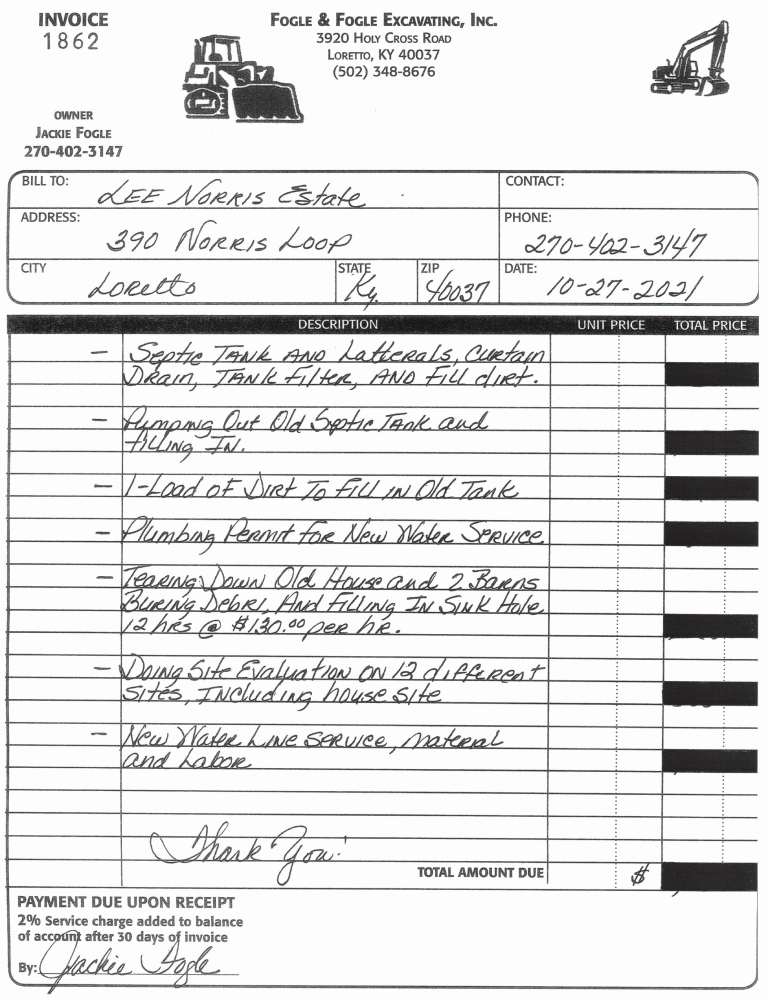 INVOICE
1862
FOGLE & FOGLE EXCAVATING, INC.
3920 HOLY CROSS ROAD
LORETTO, KY 40037
(502) 348-8676
OWNER
JACKIE FOGLE
270-402-3147
BILL TO: LEE NORRIS Estate
CONTACT:
ADDRESS: 390 NORRIS LOOP
PHONE: 270-402-3147
CITY Loretto STATE Ky. ZIP 40037 DATE: 10-27-2021
DESCRIPTION UNIT PRICE TOTAL PRICE
- Septic TANK AND Latterals, Curtain
Drain, TANK Filter, AND Fill dirt.
- Pumping Out Old Septic TANK and
filling IN.
- 1-Load of Dirt To Fill in Old Tank
- Plumbing Permit for New Water Service
- Tearing Down Old House and 2 Barns
Buring Debri, And Filling In Sink Hole
12 hrs @ $130.00 per hr.
- Doing Site Evaluation ON 12 different
Sites, Including house site
- New Water Line Service, material
and Labor
Thank You!
TOTAL AMOUNT DUE $
PAYMENT DUE UPON RECEIPT
2% Service charge added to balance
of account after 30 days of invoice
By: Jackie Fogle